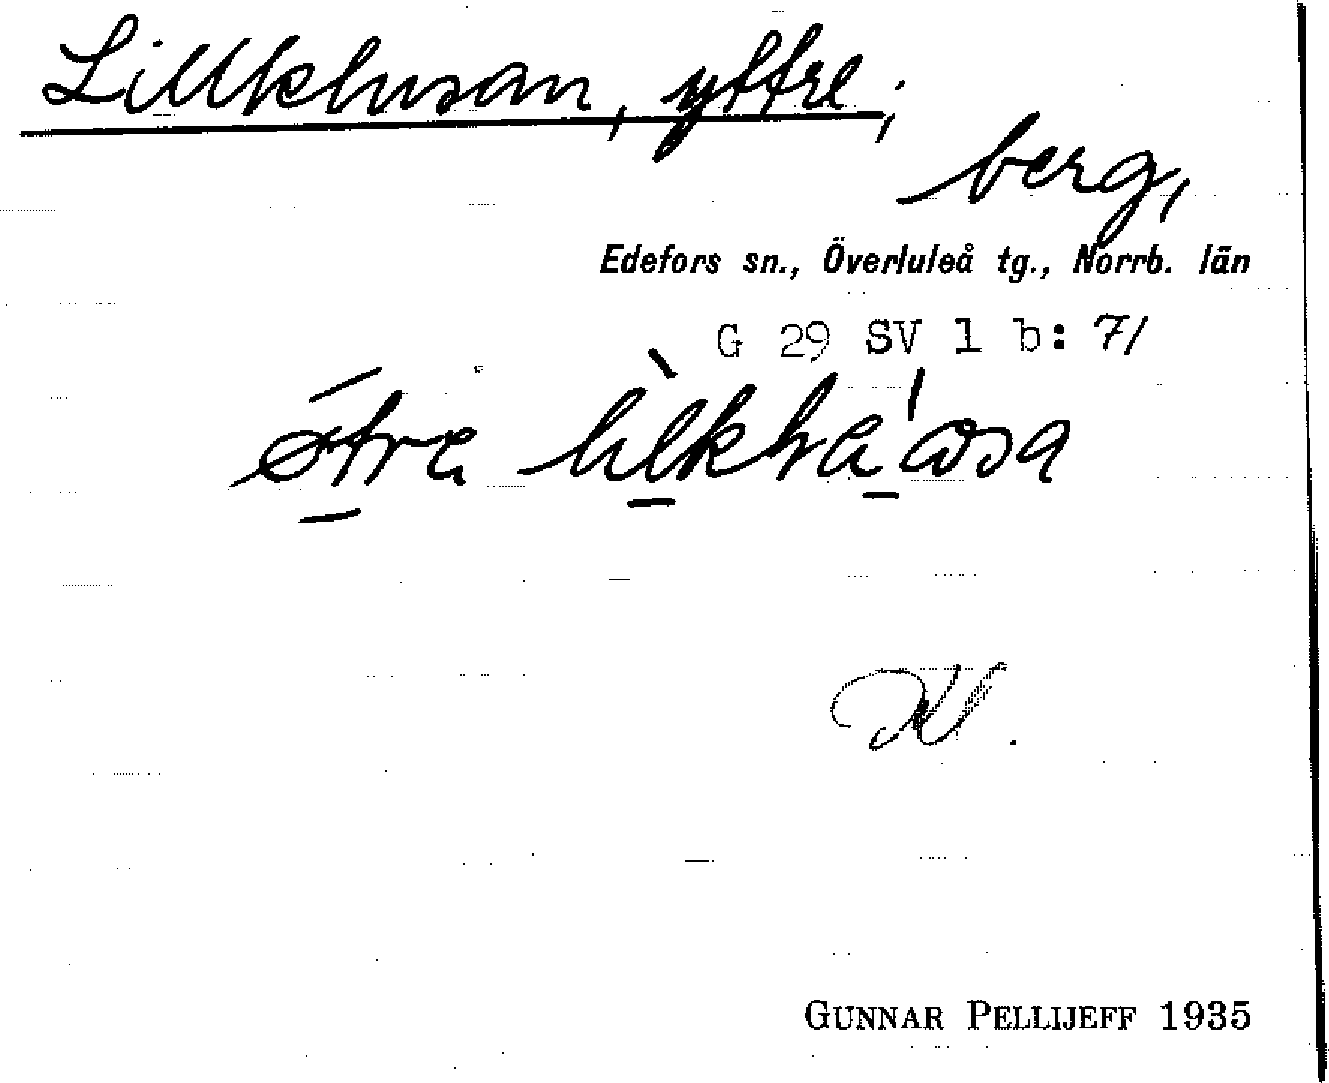 Lillklusan, yttre,
berg,
Edefors sn., Överluleå tg., Norrb. län
G 29 SV 1 b: 7/
GUNNAR PELLIJEFF 1935